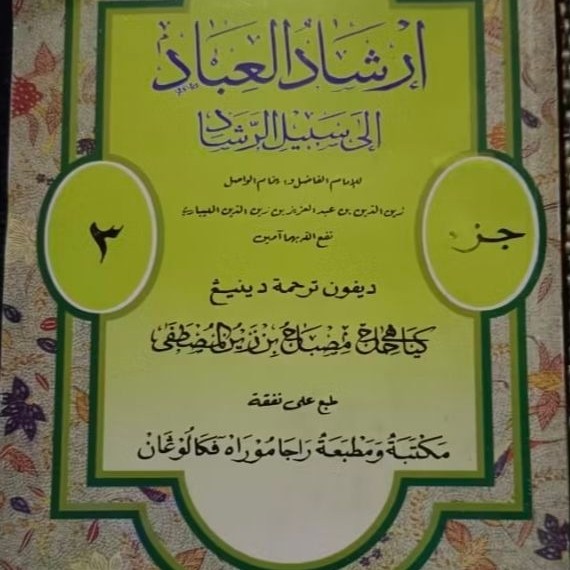 إرشاد العباد
إلى سبيل الرشاد
للإمام الفاضل والهمام الواصل
زين الدين بن عبد العزيز بن زين الدين المليباري
نفع الله بهما آمين
جزء
٣
ديفون ترجمة دينيڠ
كياهي حاج مصباح بن زين المصطفى
طبع على نفقة
مَكْتَبَةُ وَمَطْبَعَةُ رَاجَا مُوْرَاهْ فَكَالُوْڠَانْ